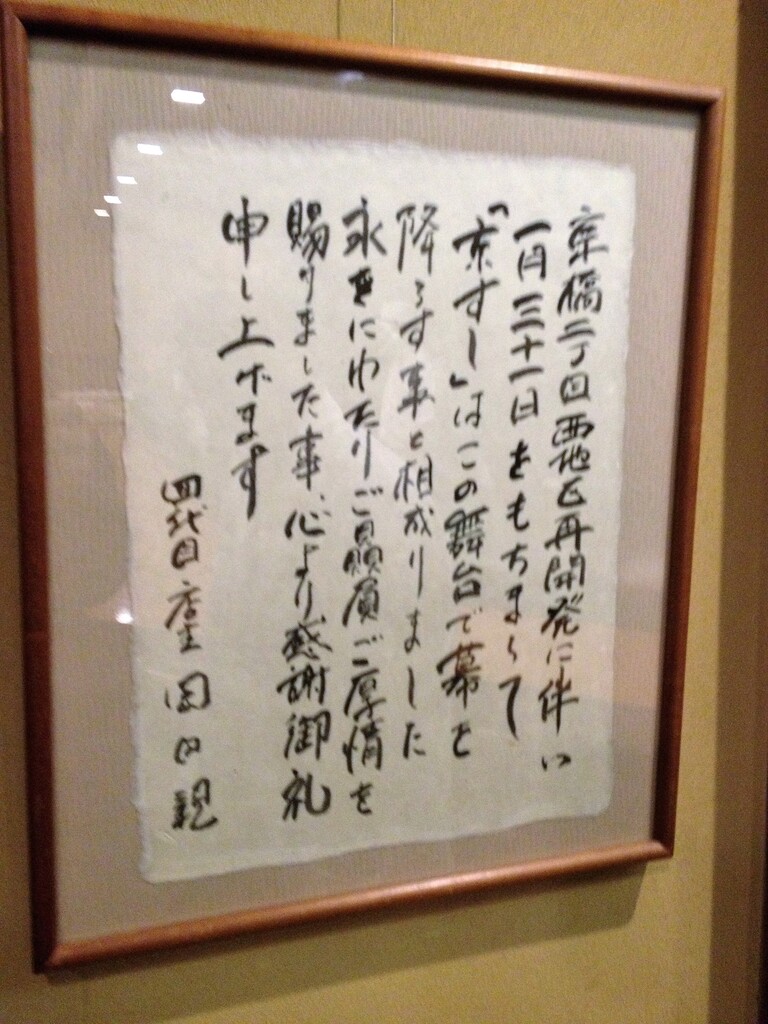 京橋二丁目西地区再開発に伴い
一月三十一日をもちまして
「京すし」はこの舞台で幕を
降ろす事と相成りました
永きにわたりご贔屓ご厚情を
賜りました事、心より感謝御礼
申し上げます
四代目店主